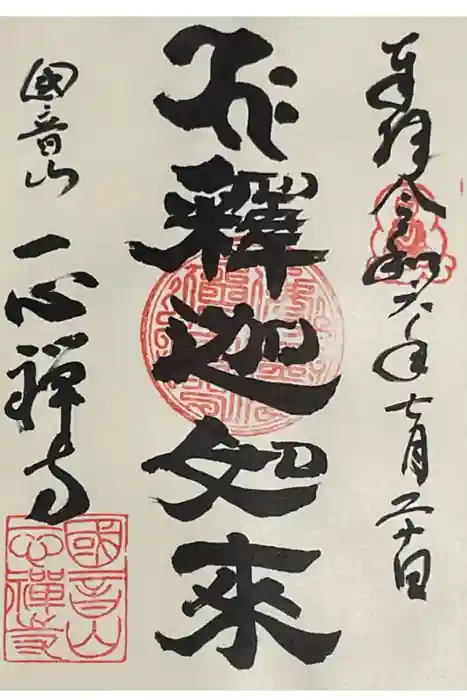 奉拝 令和六年七月二十日
釋迦如來
國音山 一心禅寺
國音山
一心禪寺